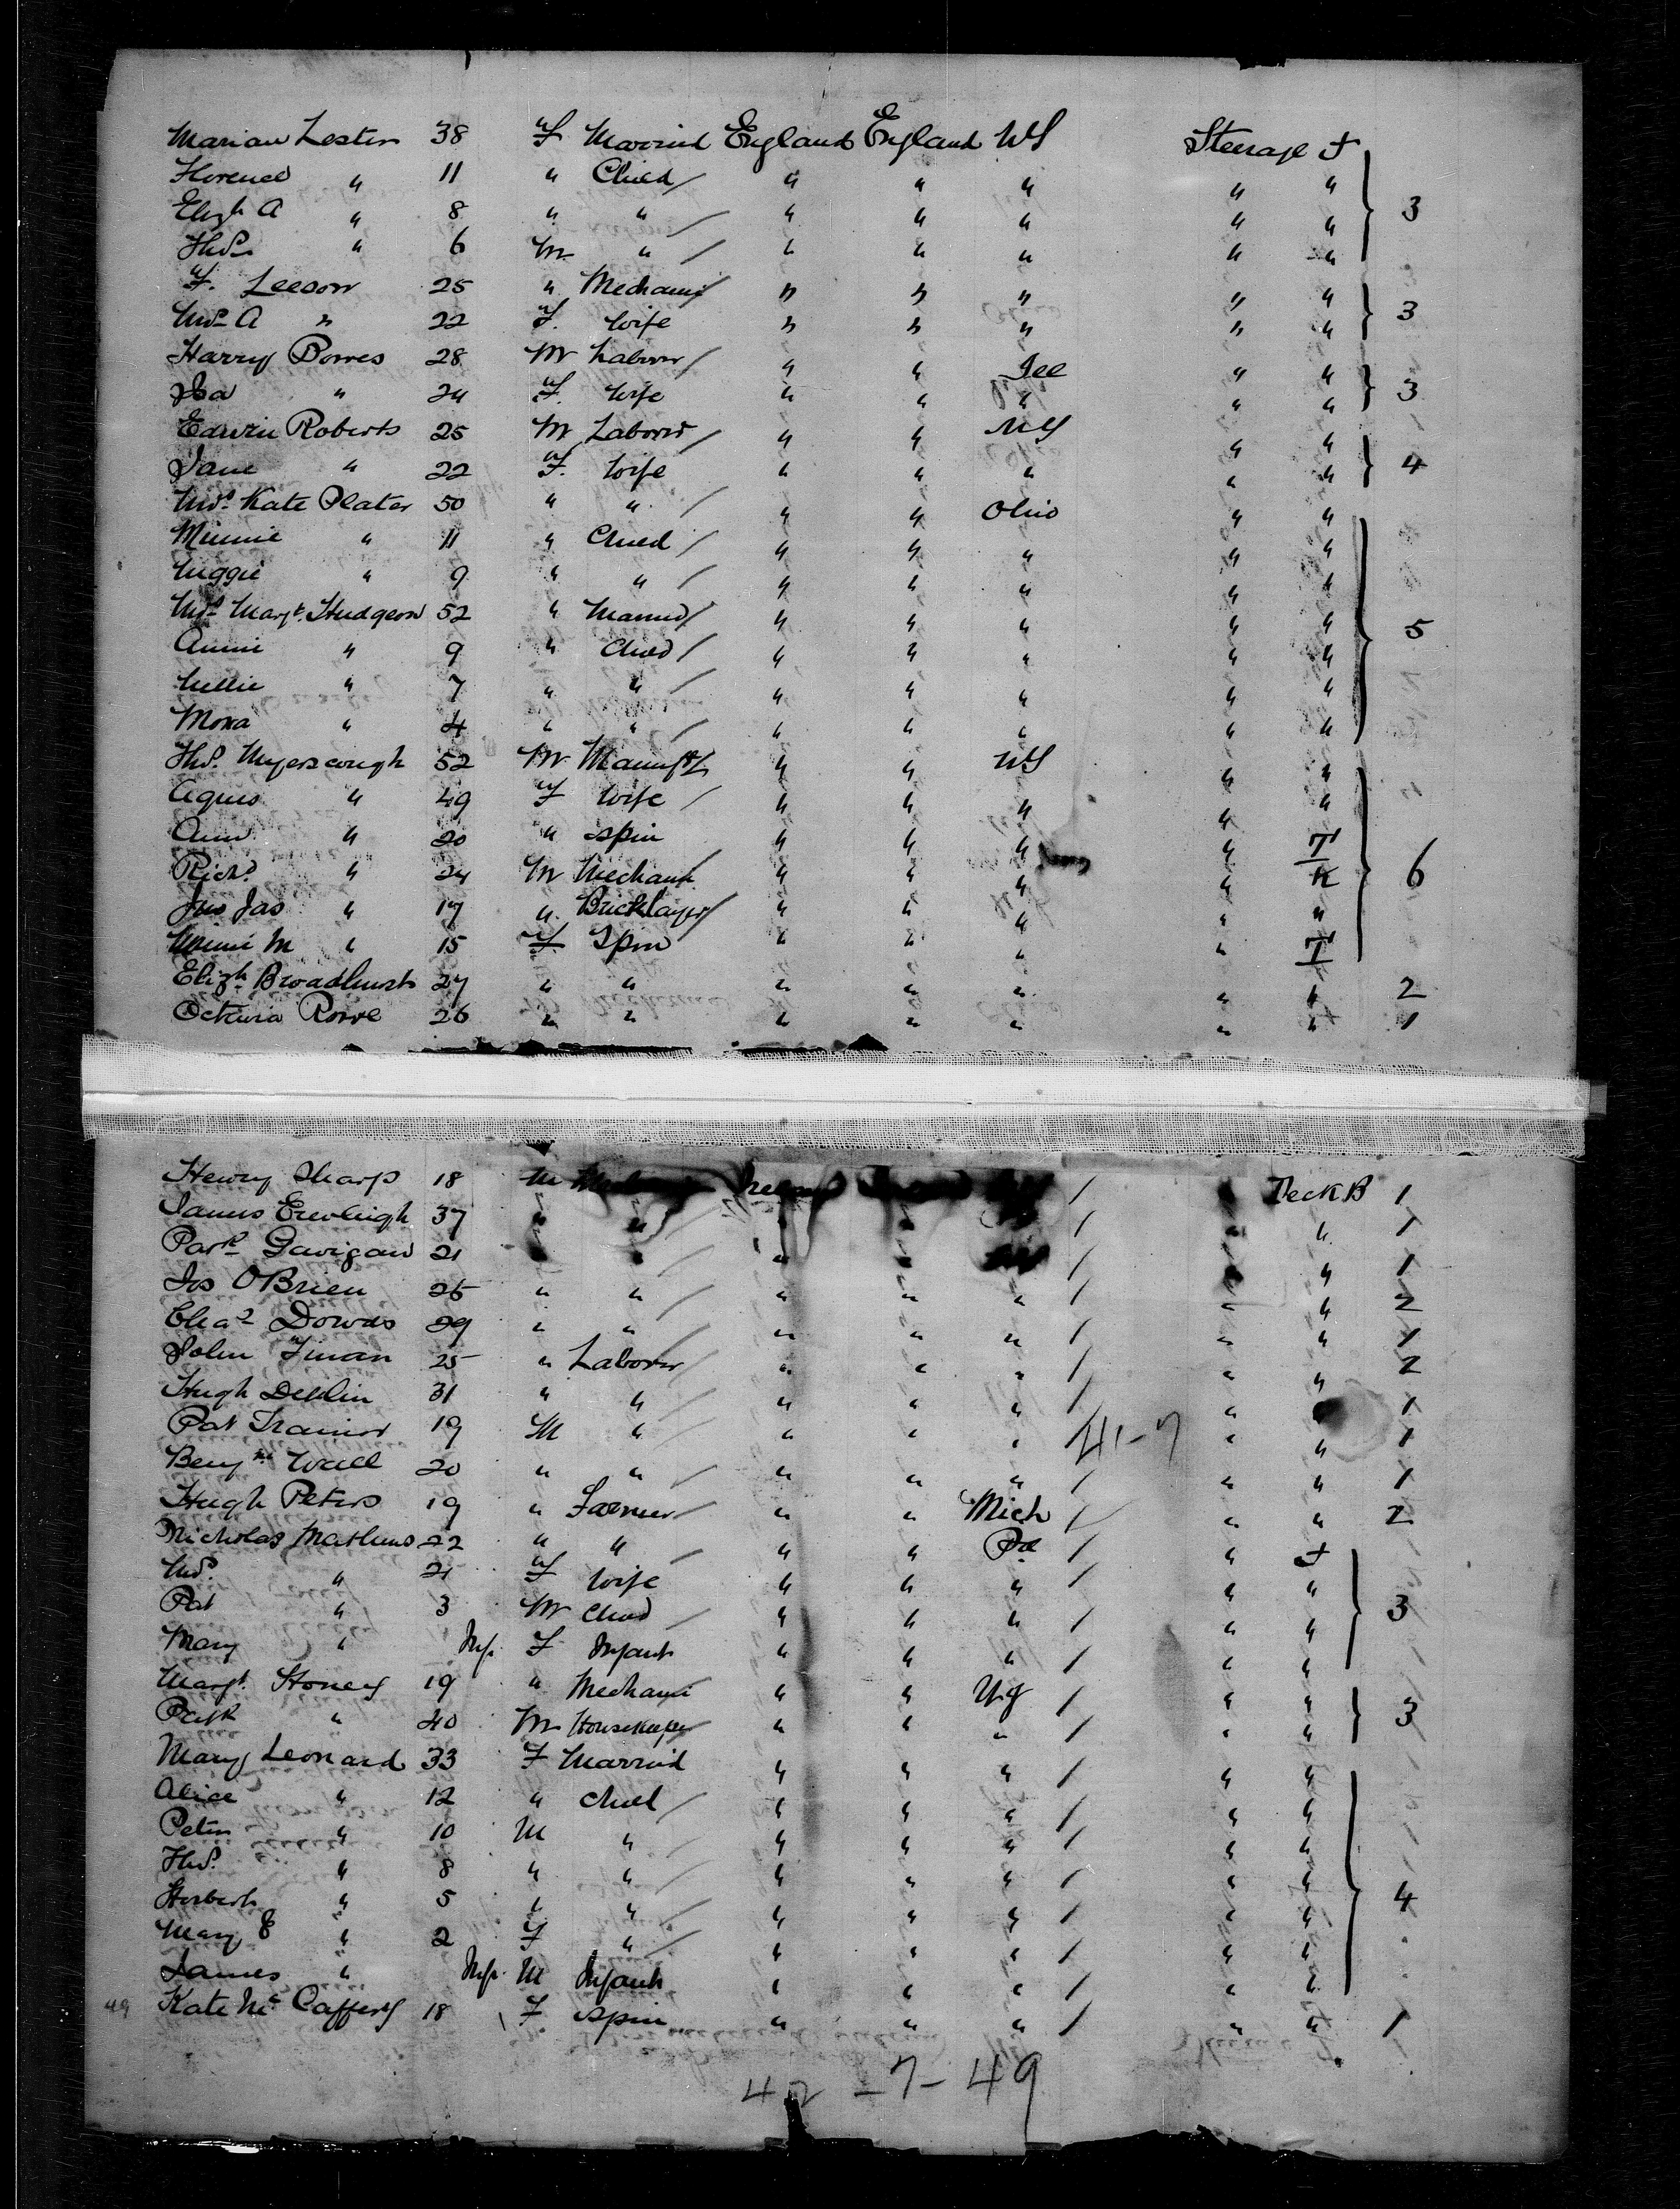 Marian Lester 38 F Married England England NY Steerage F
Florence " 11 " Child / " " " " "
Elizh A " 8 " " / " " " " " 3
Thos " 6 M " / " " " " "
F. Leeson 25 " Mechanic / " " " " "
Mrs A " 22 F. Wife " " " " " 3
Harry Bowes 28 M Laborer / " " Ill " "
Isa " 24 F. Wife " " " " " 3
Edwin Roberts 25 M Laborer / " " NY " "
Jane " 22 F. Wife " " " " " 4
Mrs Kate Plater 50 " " / " " Ohio " "
Minnie " 11 " Child / " " " " "
" 9 " " / " " " " "
Mrs Margt. Hudgeon 52 " Married / " " " " " 5
Annie " 9 " Child / " " " " "
Nellie " 7 " " / " " " " "
Mona " 4 " " / " " " " "
Thos. Myerscough 52 M " " NY " "
Agnes " 49 F Wife / " " " " "
Ann " 20 " Spin " " " " T
Richd " 24 M Mechanic " " " " K 6
Jno Jas " 17 " Bricklayer / " " " " "
Minnie M " 15 F Spin " " " " T
Elizh Broadhurst 27 " " " " " " " 2
Octavia Rowe 26 " " " " " " " 1
Henry Sharp 18 M Ireland / Deck B 1
James 37 " " / / " 1
Patk Gavigan 21 / " / " 1
Jos O'Brien 25 " " / " " " / " " 2
Chas Dowds 29 " " " " " / " " 1
John Finan 25 " Laborer / " " " / " " 2
Hugh Devlin 31 " " / " " " / " 1
Pat Trainor 19 M " " " " / 41-7 " " 1
Benjn Wall 20 " " / " " " / " " 1
Hugh Peters 19 " Farmer / " " Mich / " " 2
Nicholas Mathews 22 " " / " " Pa / " F
Mrs. " 21 F Wife " " " / " "
Pat " 3 M Child / " " " / " " 3
Mary " Inf. F Infant " " " / " "
Margt. Stoney 19 " Mechanic " " NY / " "
Patk " 40 M Housekeeper " " " / " " 3
Mary Leonard 33 F Married " " " / " "
Alice " 12 " Child / " " " / " "
Peter " 10 M " / " " " / " "
Thos. " 8 " " / " " " / " "
Herbert " 5 " " / " " " / " " 4
Mary E " 2 F " / " " " / " "
James " Inf. M Infant " " " / " "
49 Kate McCaffery 18 F Spin " " " / " " 1
42 - 7 - 49